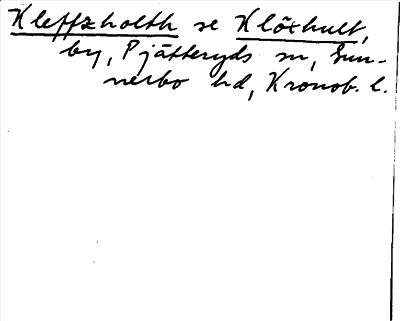 Kleffzholth se Klöxhult,
by, Pjätteryds sn, Sun-
nerbo hd, Kronob. l.